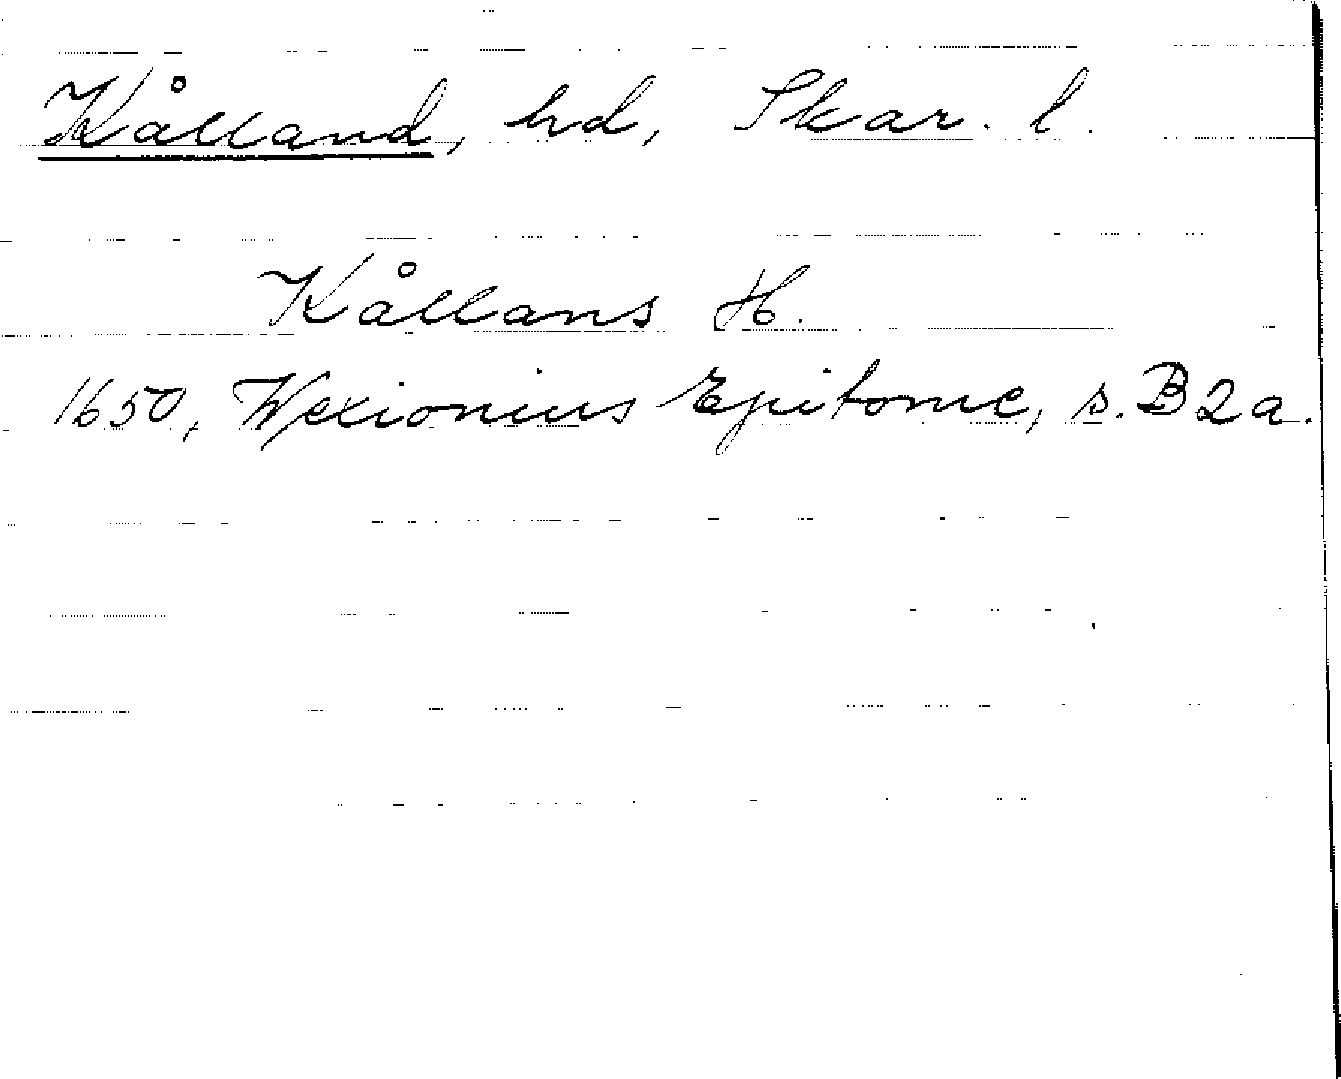 Kålland, hd, Skar. l.
Kållans H.
1650, Wexionius Epitome, s. B2a.